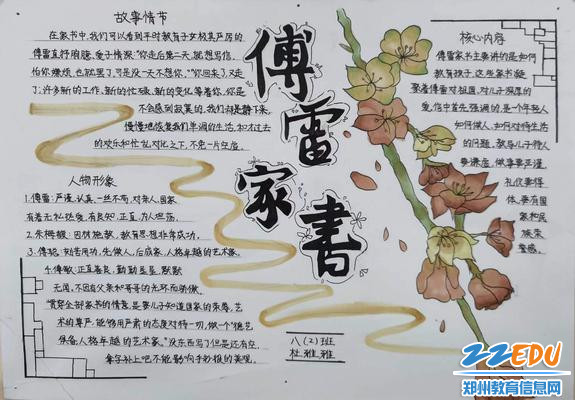 故事情节
在家书中,我们可以看到平时教育子女极其严厉的
傅雷直抒胸臆、爱子情深:"你走后第二天,就想写信,
怕你嫌烦,也就罢了,可是没一天不想你,""你回来了,又走
了;许多新的工作,新的忙碌,新的变化等着你,你是
不会感到寂寞的,我们却是静下来,
慢慢地恢复我们单调的生活,和才过去
的欢乐和忙乱对比之下,不免一片空虚。
人物形象
1.傅雷:严谨、认真、一丝不苟,对亲人国家
有着无私热爱,有良知,正直为人坦荡。
2.朱梅馥:因材施教,教育思想非常成功。
3.傅聪:刻苦用功,先做人,后成家,人格卓越的艺术家。
4.傅敏:正直善良,勤勤恳恳,默默
无闻,不因有父亲和哥哥的光环而骄傲。
"贯穿全部家书的情意,是要儿子知道国家的荣辱,艺
术的尊严,能够用严肃的态度对待一切,做一个"德艺
俱备、人格卓越的艺术家。"没东西写了但是还有空,
拿字补上吧不能影响手抄报的美观。
傅雷家书
核心内容
傅雷家书主要讲的是如何
教育孩子,这些家书凝
聚着傅雷对祖国,对儿子深厚的
爱,信中首先强调的,是一个年轻人
如何做人、如何对待生活
的问题,教导儿子待人
要谦虚,做事要严谨,
礼仪要得
体,要有国
家和民
族荣
辱感。
八(2)班
杜雅雅
22EDU
郑州教育信息网